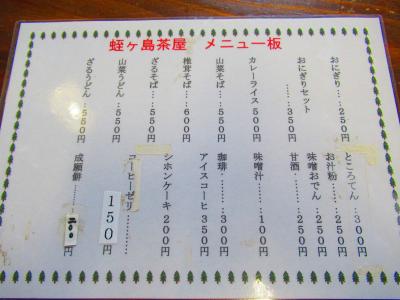 蛭ヶ島茶屋　メニュー板
おにぎり…250円
おにぎりセット
……350円
カレーライス 500円
山菜そば…550円
椎茸そば…600円
ざるそば…550円
山菜うどん…550円
ざるうどん…550円
ところてん…300円
お汁粉……250円
味噌おでん…250円
甘酒………250円
味噌汁……100円
珈琲………300円
アイスコーヒ 350円
シホンケーキ 200円
コーヒーゼリ…………
150円
成願餅………200円